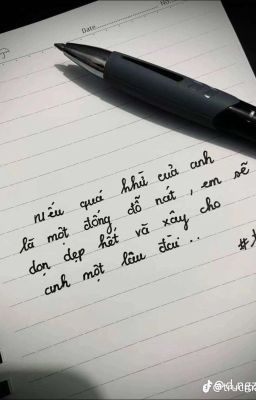 Date
Nếu quá khứ của anh
là một đống đổ nát, em sẽ
dọn dẹp hết và xây cho
anh một lâu đài..